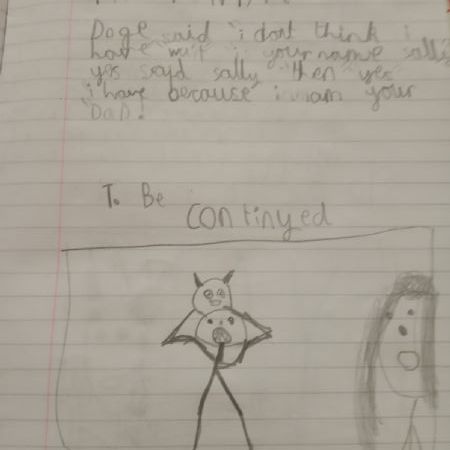 Doge said "i dont think i
have wait is your name sally
yes sayd sally "then yes
i have because i am your
DaD!
To Be continyed